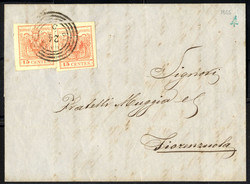 15 CENTES. 15 CENTES.
24
Signori
Fratelli Muggia e C
Fiorenzuola